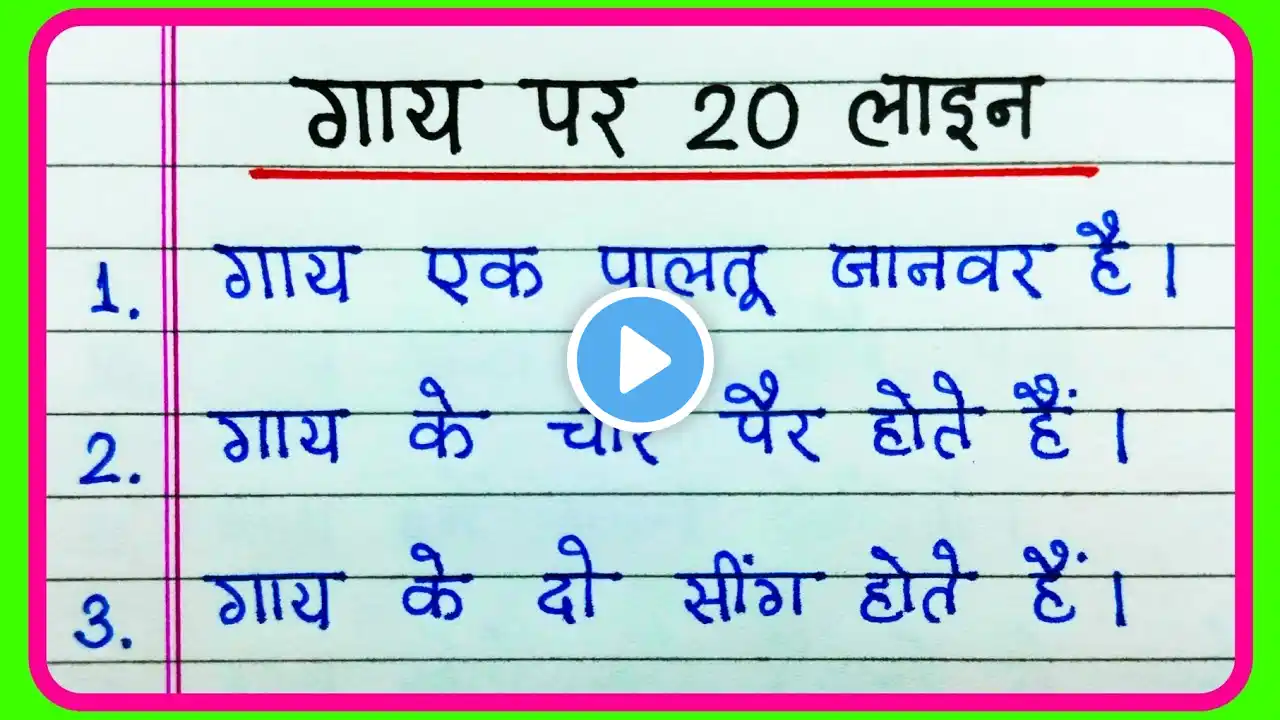 गाय पर 20 लाइन
1. गाय एक पालतू जानवर है।
2. गाय के चार पैर होते हैं।
3. गाय के दो सींग होते हैं।